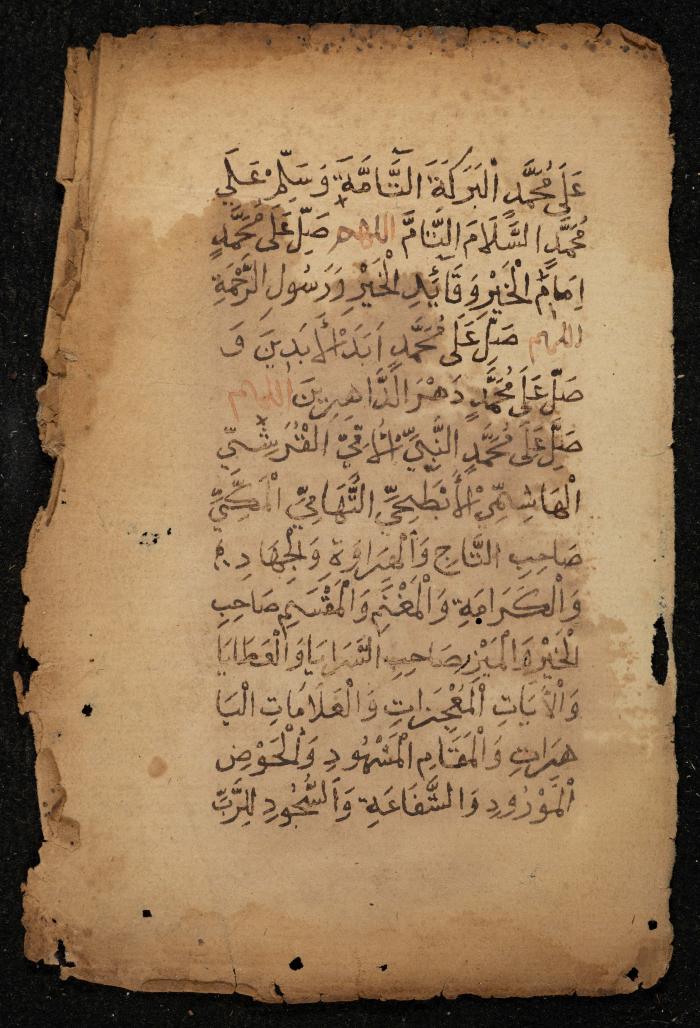 عَلَى مُحَمَّدٍ الْبَرَكَةَ التَّامَّةَ وَسَلِّمْ عَلَى
مُحَمَّدٍ السَّلَامَ التَّامَّ اللهم صَلِّ عَلَى مُحَمَّدٍ
اِمَامِ الْخَيْرِ وَقَائِدِ الْخَيْرِ وَرَسُولِ الرَّحْمَةِ
اللهم صَلِّ عَلَى مُحَمَّدٍ اَبَدَ الْأَبَدِينَ وَ
صَلِّ عَلَى مُحَمَّدٍ دَهْرَ الدَّاهِرِينَ اللهم
صَلِّ عَلَى مُحَمَّدٍ النَّبِيِّ الْأُمِّيِّ الْقُرَشِيِّ
الْهَاشِمِيِّ الْأَبْطَحِيِّ التَّهَامِيِّ الْمَكِّيِّ
صَاحِبِ التَّاجِ وَالْهِرَاوَةِ وَالْجِهَادِ
وَالْكَرَامَةِ وَالْمَغْنَمِ وَالْمَقْسَمِ صَاحِبِ
الْخَيْرِ وَالْمَيْزِ صَاحِبِ السَّرَايَا وَالْعَطَايَا
وَالْأَيَاتِ الْمُعْجِزَاتِ وَالْعَلَامَاتِ الْبَا
هِرَاتِ وَالْمَقَامِ الْمَشْهُودِ وَالْحَوْضِ
الْمَوْرُودِ وَالشَّفَاعَةِ وَالسُّجُودِ لِلرَّبِّ